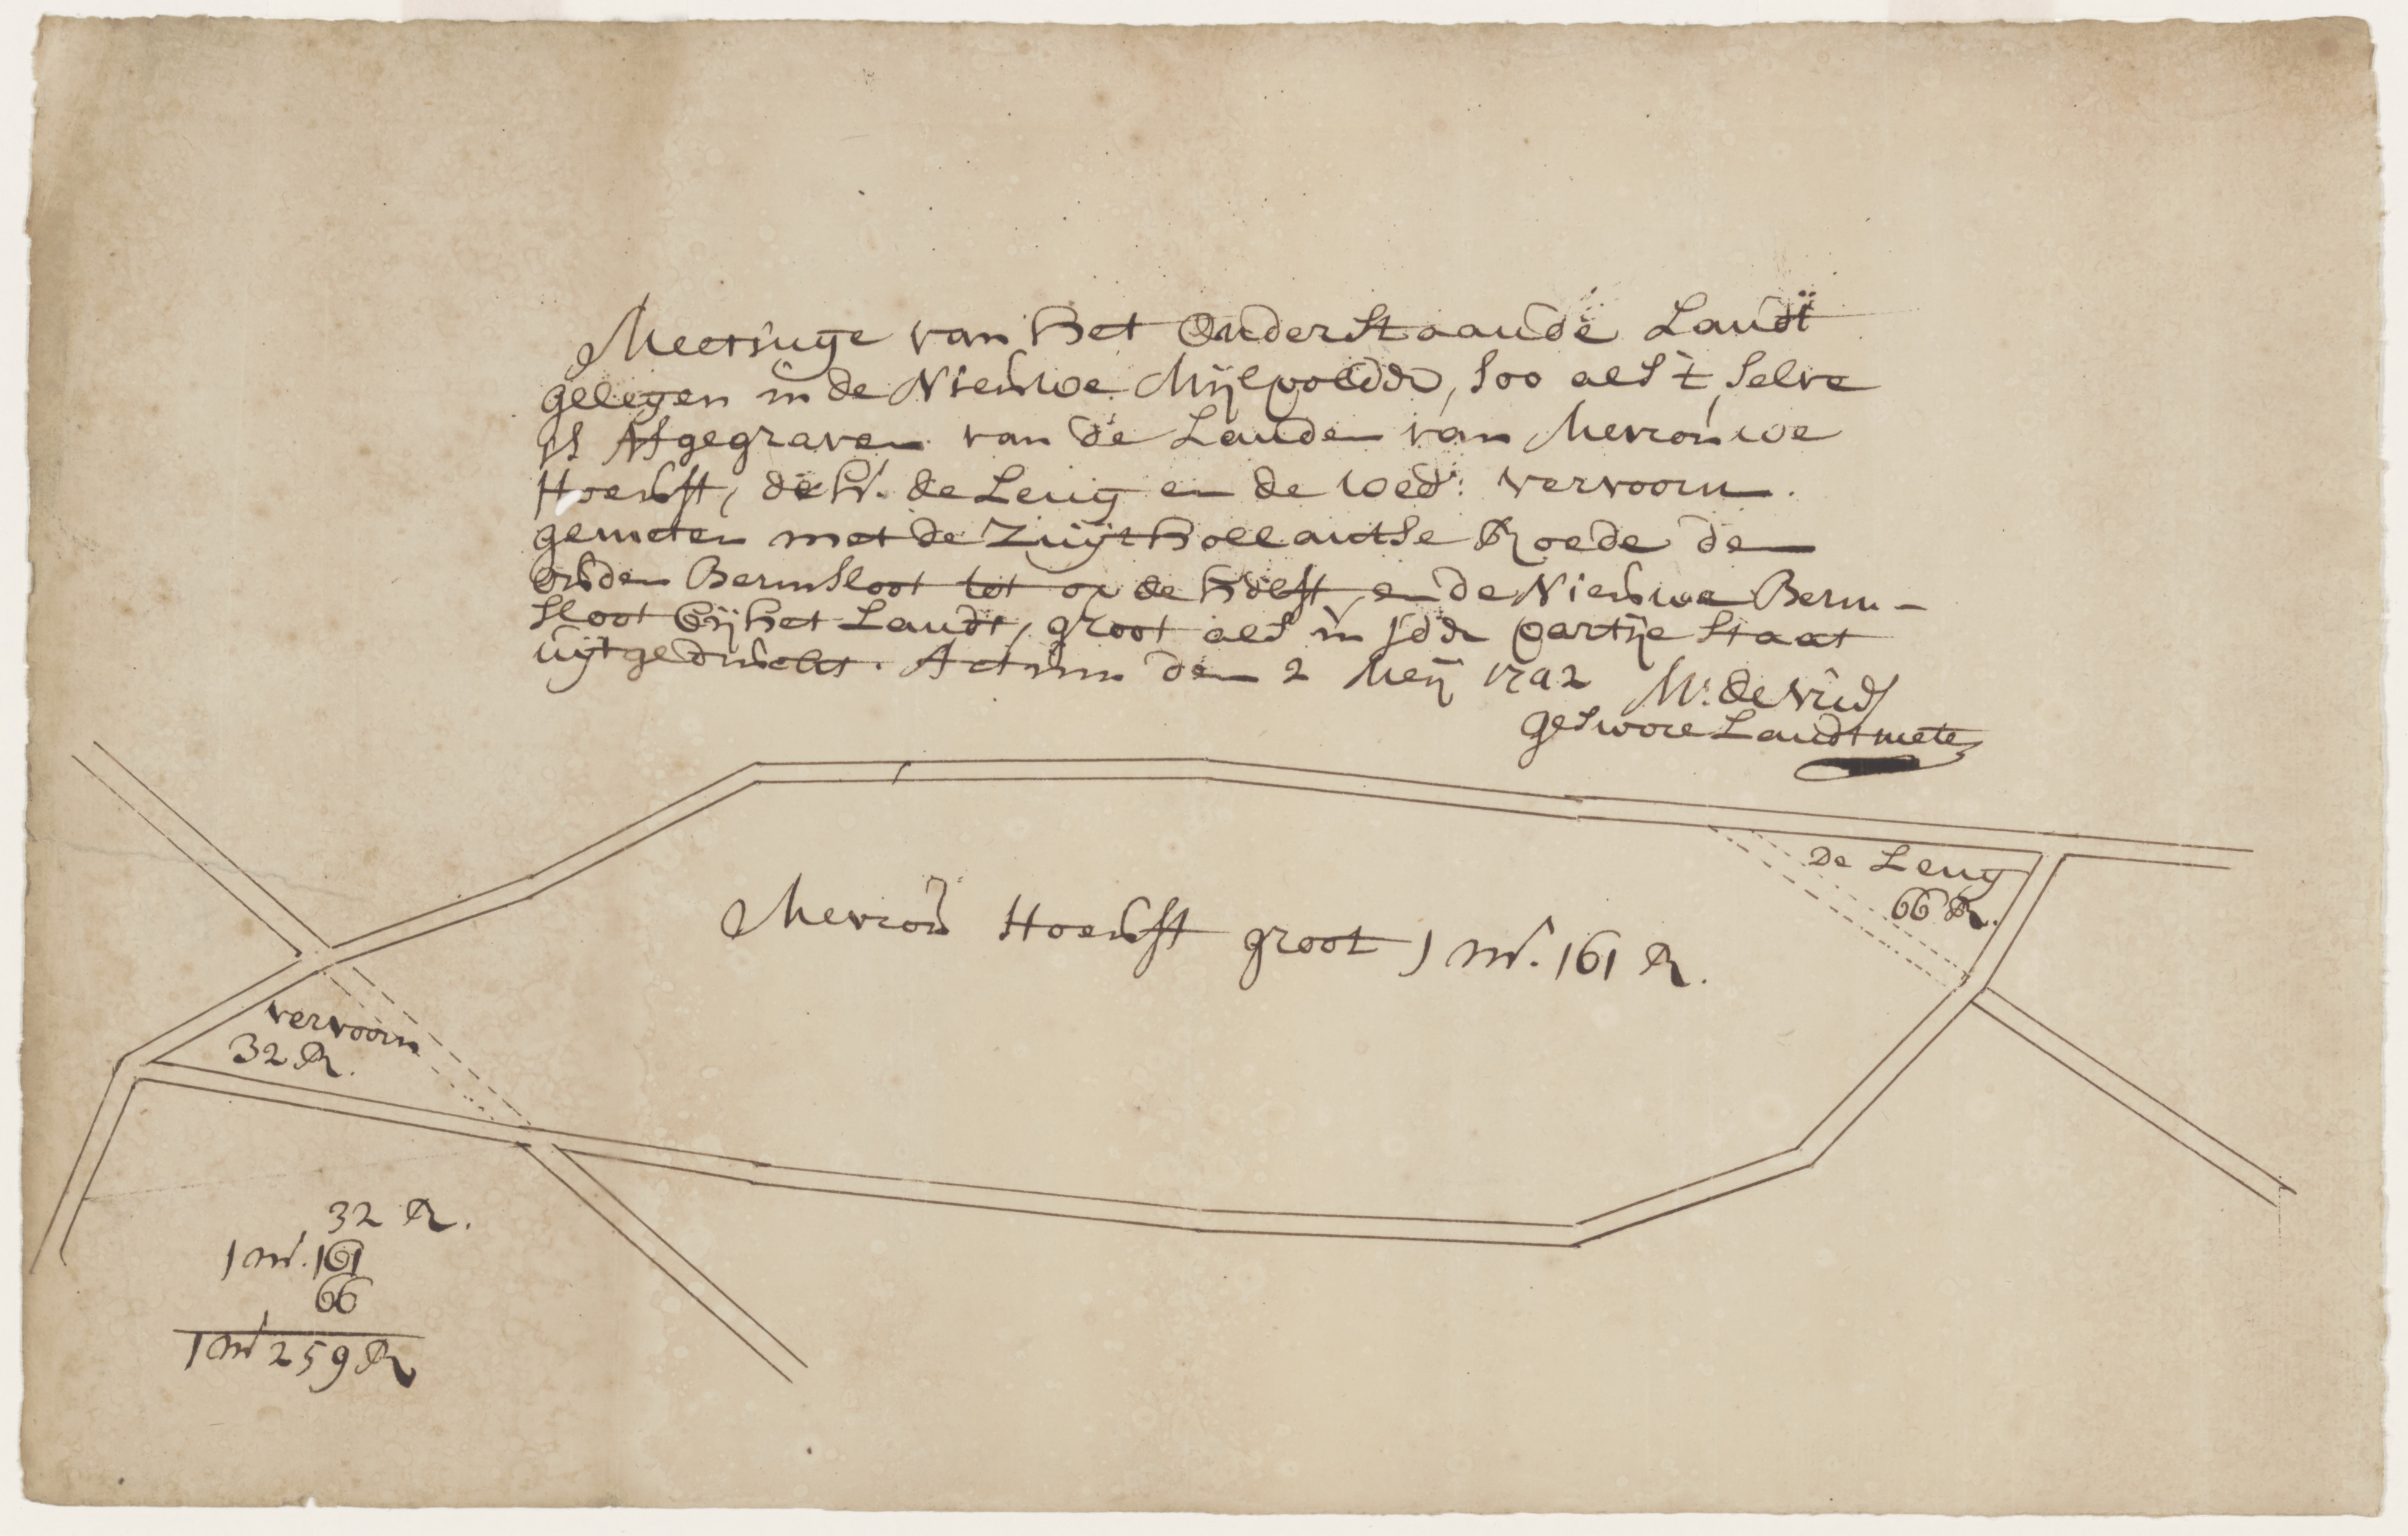 Meetinge van Het Onderstaande Landt
gelegen in de Nieuwe Mijlpolder, soo als t selve
is Afgegraven van de Landen van Mevrouwe
Hoeufft, de H. de Leng en de Wed: Vervoorn.
gemeten met de Zuijthollantse Roede de
ouden Bermsloot tot op de helft en de Nieuwe Berm-
sloot bij het Landt, groot als in jder partije staat
uijtgedruckt. Actum den 2 Meij 1742
geswore Landtmeter
De Leng
66 R.
Mevrou Hoeufft groot 1 m. 161 R.
vervoorn
32 R.
32 R.
1 m. 161
66
1 m 259 R